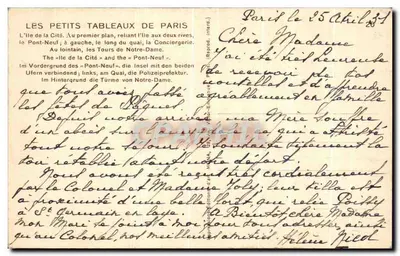 LES PETITS TABLEAUX DE PARIS
L'Ile de la Cité. Au premier plan, reliant l'Ile aux deux rives,
le Pont-Neuf; à gauche, le long du quai, la Conciergerie.
Au lointain, les Tours de Notre-Dame.
The «Ile de la Cité» and the «Pont-Neuf».
Im Vordergrund des «Pont-Neuf», die Insel mit den beiden
Ufern verbindend; links, am Quai, die Polizeipräfektur.
Im Hintergrund die Türme von Notre-Dame.
Paris le 25 Avril 31
Chère Madame
J'ai été très heureuse
de recevoir de vos
nouvelles et d'apprendre
que vous avez passé agréablement en famille
les fêtes de Pâques.
Depuis notre arrivée ma Mère souffre
d'un abcès qui a attristé
tout notre séjour. Je souhaite vivement la
voir rétablie avant notre départ.
Nous avons été reçus très cordialement
par le Colonel et Madame Joly; leur villa est
à proximité d'une belle forêt, qui relie Poissy
à St Germain en Laye. A Bientôt, chère Madame
mon Mari se joint à moi pour vous adresser, ainsi
qu'au Colonel, nos meilleures amitiés. Hélène